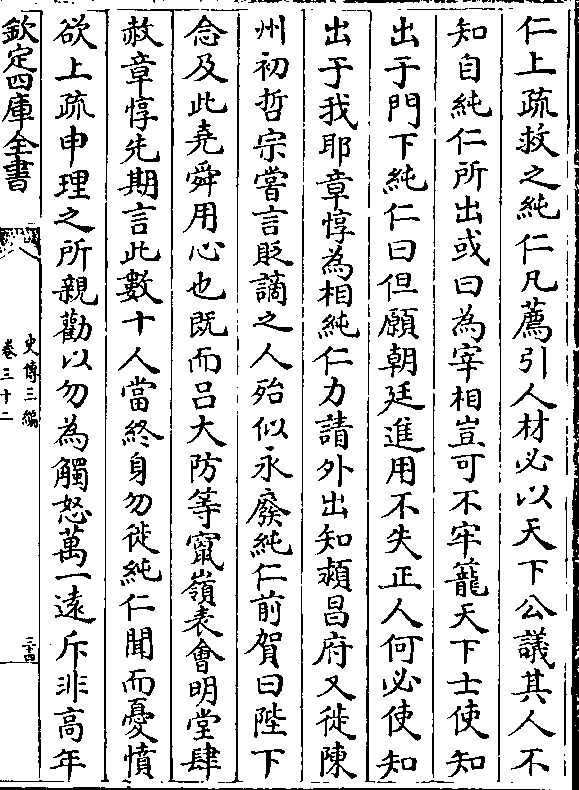 仁上疏救之純仁凡薦引人材必以天下公議其人不
知自純仁所出或曰為宰相豈可不牢籠天下士使知
出于門下純仁曰但願朝廷進用不失正人何必使知
出于我耶章惇為相純仁力請外出知潁昌府又徙陳
州初哲宗嘗言貶謫之人殆似永廢純仁前賀曰陛下
念及此堯舜用心也既而吕大防等竄嶺表會明堂肆
赦章惇先期言此數十人當終身勿徙純仁聞而憂憤
欲上疏申理之所親勸以勿為觸怒萬一遠斥非高年
欽定四庫全書
史傳三編
卷三十二
三十四